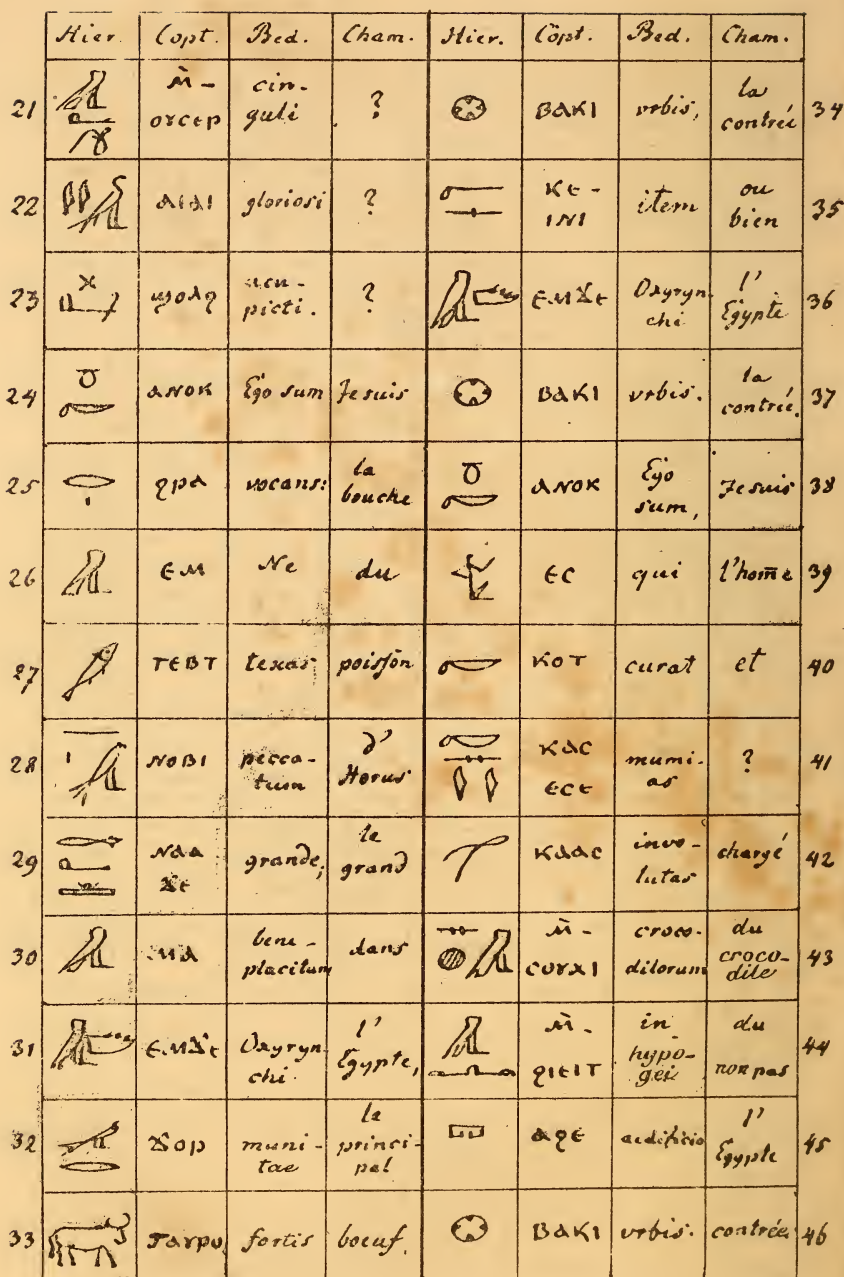 Hier. Copt. Bed. Cham. Hier. Copt. Bed. Cham.
21 ⲙ̄- ⲟⲩⲥⲉⲣ cin- guli ?
ⲃⲁⲕⲓ urbis, la contrée 34
22 ⲁⲓⲁⲓ gloriosi ?
ⲕⲉ- ⲓⲛⲓ item ou bien 35
23 acu- picti. ?
ⲉⲙϫⲉ Oxyryn- chi l' Egypte 36
24 ⲁⲛⲟⲕ Ego sum Je suis
ⲃⲁⲕⲓ urbis. la contrée. 37
25 ϩⲣⲁ vocans: la bouche
ⲁⲛⲟⲕ Ego sum, Je suis 38
26 ⲉⲙ Ne du
ⲉⲥ qui l'hom̄e 39
27 ⲧⲉⲃⲧ texas poisson
ⲕⲟⲧ curat et 40
28 ⲛⲟⲃⲓ pecca- tum d' Horus
ⲕⲁⲥ ⲉⲥⲉ mumi- as ? 41
29 ⲛⲁⲁ ϫⲉ grande, le grand
ⲕⲁⲁⲥ invo- lutas chargé 42
30 ⲙⲁ bene- placitum dans
ⲙ̄- ⲥⲟⲩⲭⲓ croco- dilorum du croco- dile 43
31 ⲉⲙϫⲉ Oxyryn- chi l' Egypte,
ⲙ̄- ϩⲓⲉⲓⲧ in hypo- gei du non pas 44
32 ϫⲟⲣ muni- tae le princi- pal
ⲁϩⲉ aedificio l' Egypte 45
33 ⲧⲁⲩⲣⲟ fortis boeuf.
ⲃⲁⲕⲓ urbis. contrée 46